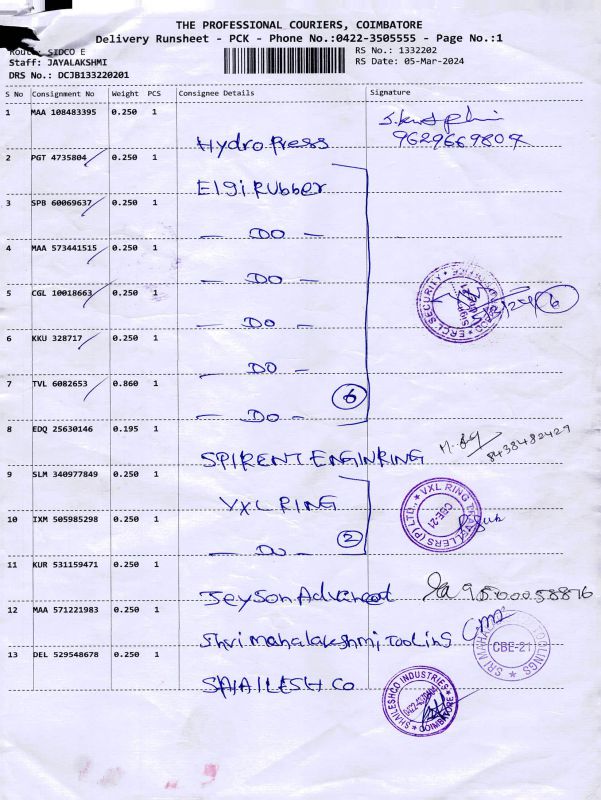 THE PROFESSIONAL COURIERS, COIMBATORE
Delivery Runsheet - PCK - Phone No.:0422-3505555 - Page No.:1
Route: SIDCO E
Staff: JAYALAKSHMI
DRS No.: DCJB133220201
RS No.: 1332202
RS Date: 05-Mar-2024
S No Consignment No Weight PCS Consignee Details Signature
1 MAA 108483395 0.250 1
Hydro Press
9629669809
2 PGT 4735804 0.250 1
Elgi Rubber
3 SPB 60069637 0.250 1
— DO —
4 MAA 573441515 0.250 1
— DO —
5 CGL 10018663 0.250 1
— DO —
ERCL SECURITY
6
6 KKU 328717 0.250 1
— DO —
7 TVL 6082653 0.860 1
— DO —
6
8 EDQ 25630146 0.195 1
SPIRENT ENGINRING
8438482429
9 SLM 340977849 0.250 1
VXL RING
VXL RING TRAVELLERS (P) LTD.,
CBE-21
10 IXM 505985298 0.250 1
— DO —
2
11 KUR 531159471 0.250 1
Jeyson Advanced
9500058876
12 MAA 571221983 0.250 1
Shri mahalakshmi Tooling
SRI MAHALAKSHMI TOOLINGS
CBE-21
13 DEL 529548678 0.250 1
SHAILESH CO
SHAILESHCO INDUSTRIES
COIMBATORE